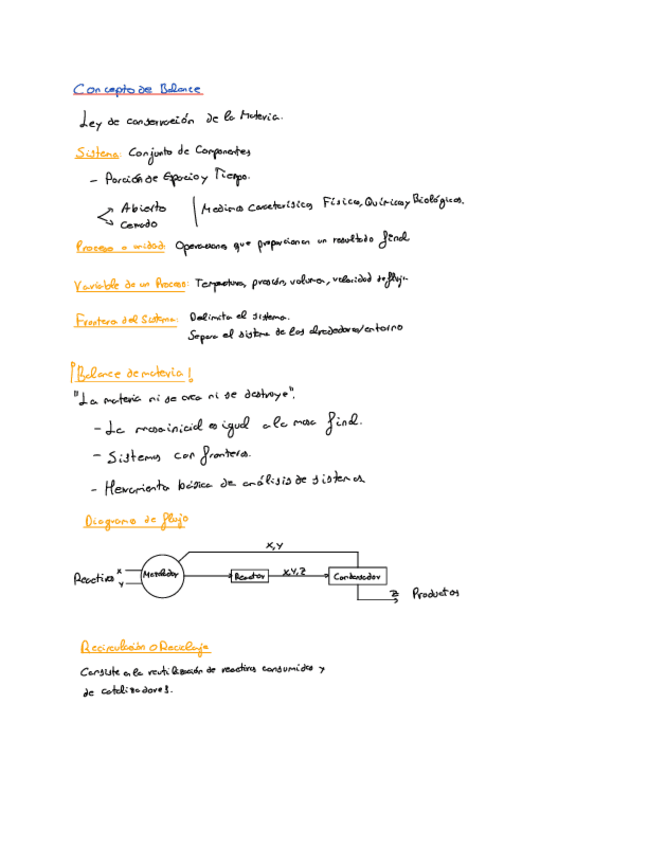 Concepto de Balance
Ley de conservación de la Materia.
Sistema: Conjunto de Componentes
- Porción de Espacio y Tiempo.
Abierto
Cerrado
Medimos Caracterísicas Físicas, Químicas y Biológicas.
Proceso o unidad: Operaciones que proporcionan un resultado final
Variable de un Proceso: Temperatura, presión, volumen, velocidad de flujo
Frontera del Sistema: Delimita el sistema.
Separa el sistema de los alrededores/entorno
¡Balance de materia!
"La materia ni se crea ni se destruye".
- La masa inicial es igual a la masa final.
- Sistemas con fronteras.
- Herramienta básica de análisis de sistemas
Diagrama de flujo
X,Y
Reactivo X Y Mezclador Reactor X,Y,Z Condensador
Z Productos
Recirculación o Reciclaje
Consiste en la reutilización de reactivos consumidos y
de catalizadores.